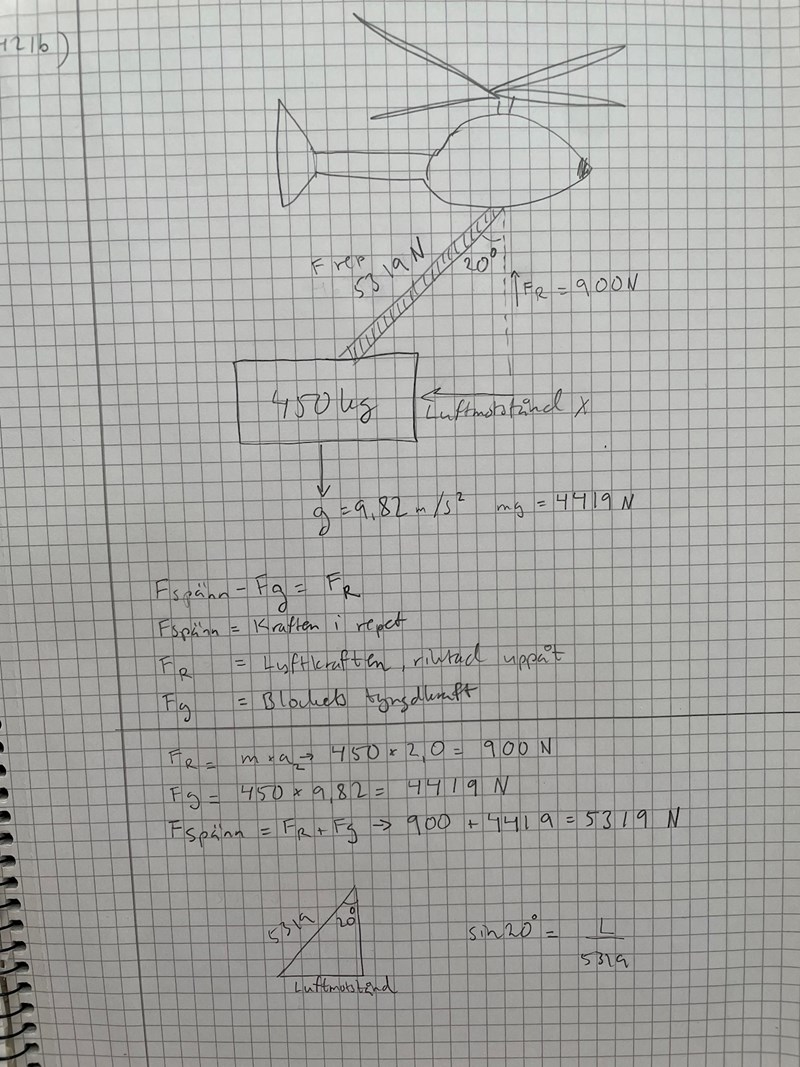 216)
F rep
5319 N
20°
FR = 900N
450 kg
Luftmotstånd X
g = 9,82 m/s² mg = 4419 N
Fspänn - Fg = FR
Fspänn = Kraften i repet
FR = Lyftkraften, riktad uppåt
Fg = Blockets tyngdkraft
FR = m * a → 450 * 2,0 = 900 N
Fg = 450 * 9,82 = 4419 N
Fspänn = FR + Fg → 900 + 4419 = 5319 N
5319
20°
Luftmotstånd
sin 20° = L / 5319